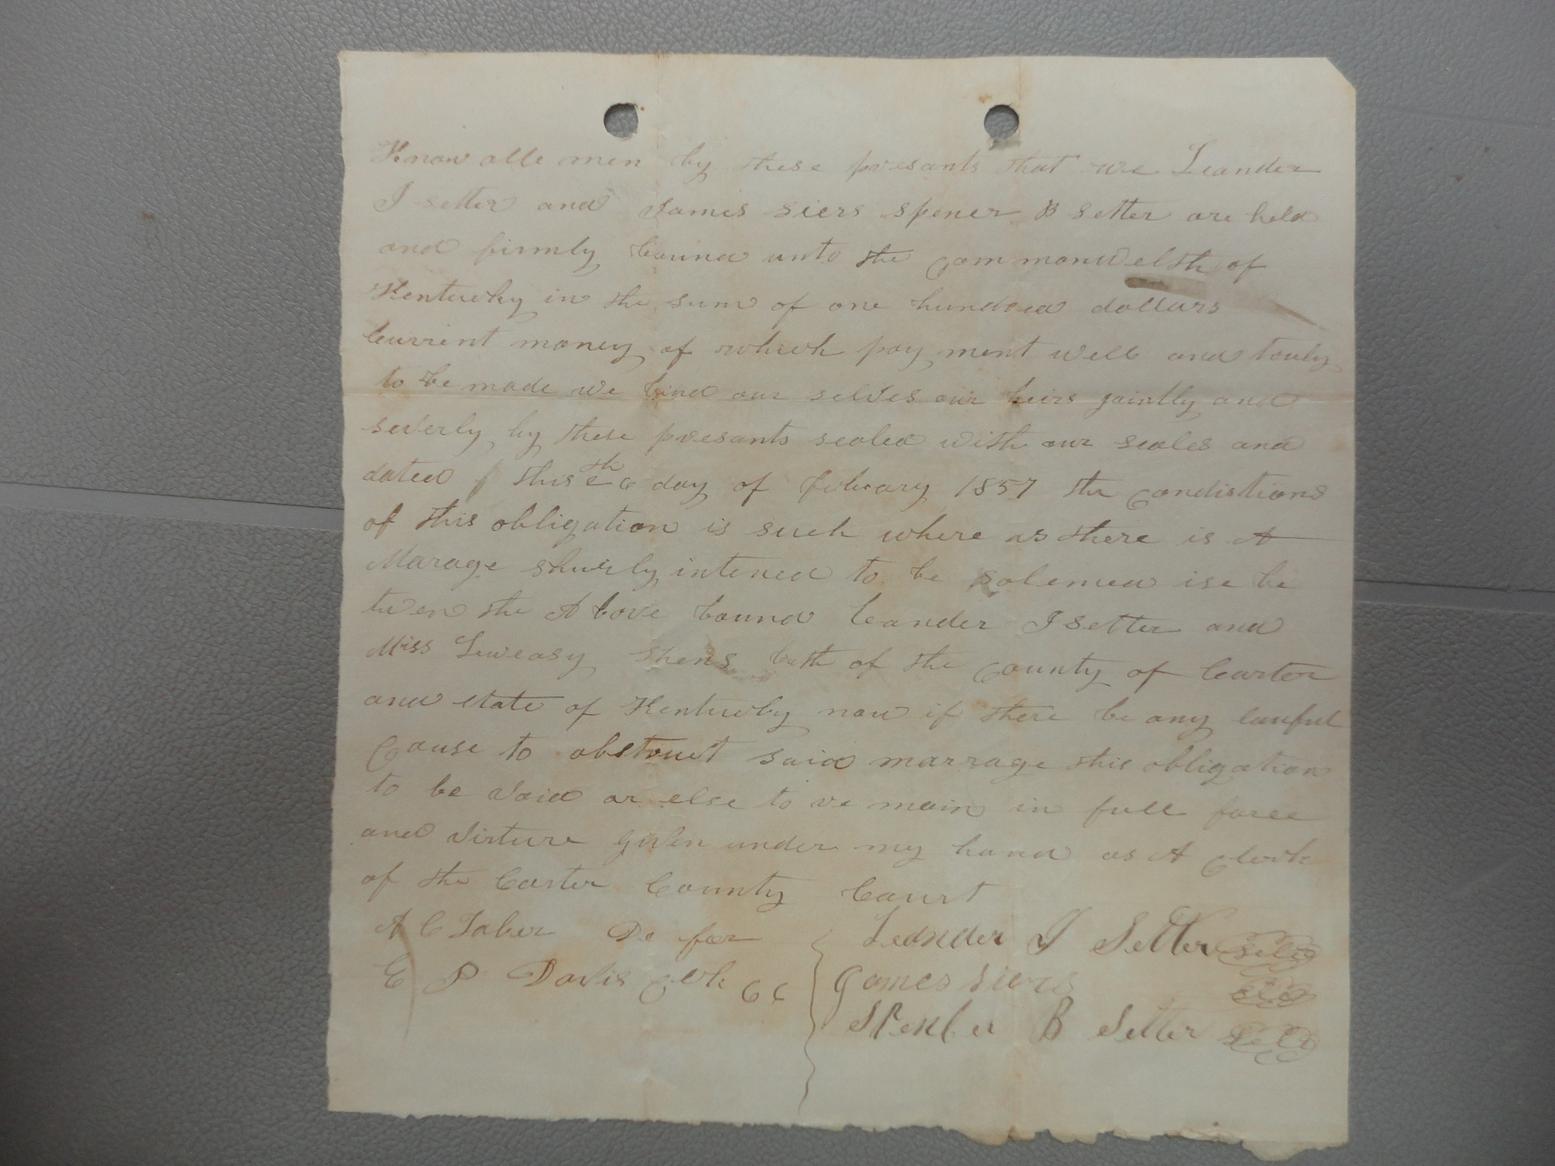 Know alle men by these presants that we Leander
J setter and James siers spener B setter are held
and firmly bound unto the commonwelth of
Kentucky in the sum of one hundred dollars
Current money of which pay ment well and truly
to be made we bind our selves our heirs jointly and
severly by these presants sealed with our seales and
dated this 6 day of febuary 1857 the condistions
of this obligation is such where as there is A
Marage shurly intened to be solemed ise be
tween the Above bound Leander J setter and
Miss both of the county of Carter
and state of Kentucky now if there be any lawful
Cause to obstruct said marrage this obligation
to be void or else to re main in full force
and virture given under my hand as A clerk
of the Carter County Court
A C Taber De for Leander J Setter seled
E P Davis clerk C C James siers
Spencer B Setter seled